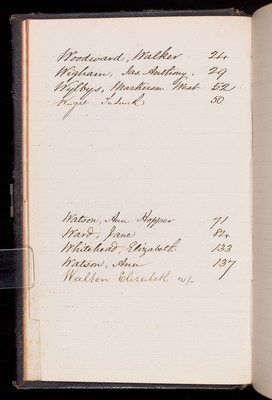 Woodward, Walker 24
Wigham, Jas. Anthony. 29
Wylbys, Markinson West 52
Wright 50
Watson, Ann Hopper 71
Ward, Jane 84
Whitehead, Elizabeth 133
Watson, Ann 137
Walton Elizabeth